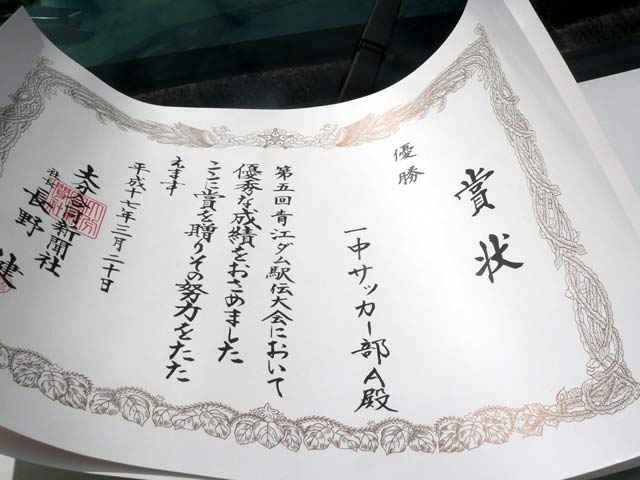 賞状
優勝
一中サッカー部A殿
第五回青江ダム駅伝大会において
優秀な成績をおさめました
ここに賞を贈りその努力をたた
えます
平成十七年三月二十日
大分合同新聞社
社長 長野 健